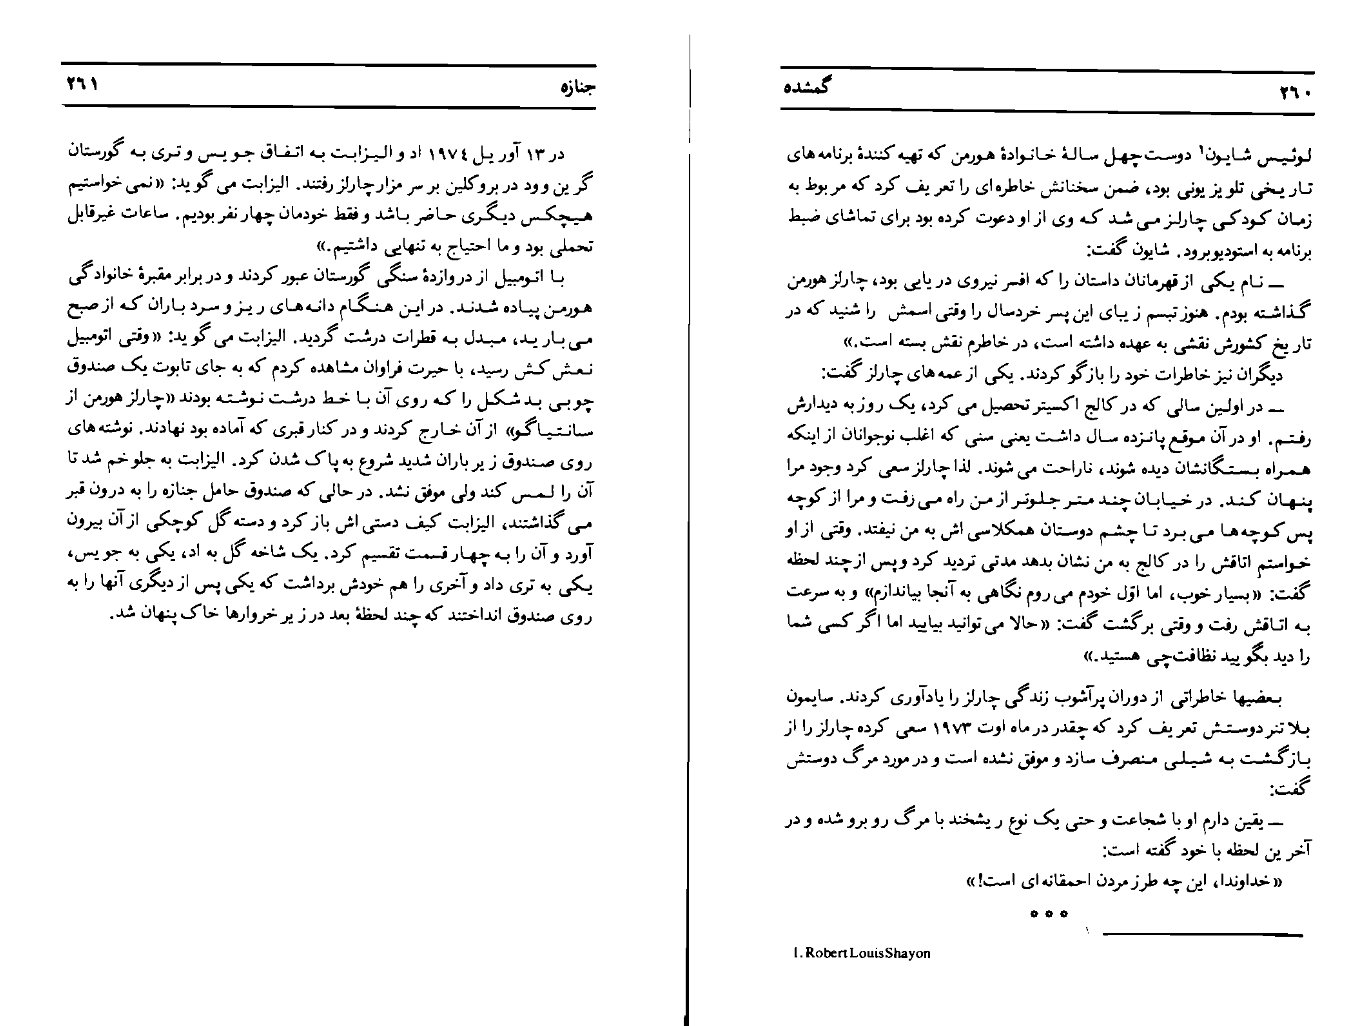 ۲۶۰
گمشده
لوئیس شایون۱ دوست چهل سالهٔ خانوادهٔ هورمن که تهیه کنندهٔ برنامه های
تاریخی تلویزیونی بود، ضمن سخنانش خاطره ای را تعریف کرد که مربوط به
زمان کودکی چارلز می شد که وی از او دعوت کرده بود برای تماشای ضبط
برنامه به استودیو برود. شایون گفت:
— نام یکی از قهرمانان داستان را که افسر نیروی دریایی بود، چارلز هورمن
گذاشته بودم. هنوز تبسم زیبای این پسر خردسال را وقتی اسمش را شنید که در
تاریخ کشورش نقشی به عهده داشته است، در خاطرم نقش بسته است.»
دیگران نیز خاطرات خود را بازگو کردند. یکی از عمه های چارلز گفت:
— در اولین سالی که در کالج اکسیتر تحصیل می کرد، یک روز به دیدارش
رفتم. او در آن موقع پانزده سال داشت یعنی سنی که اغلب نوجوانان از اینکه
همراه بستگانشان دیده شوند، ناراحت می شوند. لذا چارلز سعی کرد وجود مرا
پنهان کند. در خیابان چند متر جلوتر از من راه می رفت و مرا از کوچه
پس کوچه ها می برد تا چشم دوستان همکلاسی اش به من نیفتد. وقتی از او
خواستم اتاقش را در کالج به من نشان بدهد مدتی تردید کرد و پس از چند لحظه
گفت: «بسیار خوب، اما اوّل خودم می روم نگاهی به آنجا بیاندازم» و به سرعت
به اتاقش رفت و وقتی برگشت گفت: «حالا می توانید بیایید اما اگر کسی شما
را دید بگویید نظافت چی هستید.»
بعضیها خاطراتی از دوران پرآشوب زندگی چارلز را یادآوری کردند. سایمون
بلاتنر دوستش تعریف کرد که چقدر در ماه اوت ۱۹۷۳ سعی کرده چارلز را از
بازگشت به شیلی منصرف سازد و موفق نشده است و در مورد مرگ دوستش
گفت:
— یقین دارم او با شجاعت و حتی یک نوع ریشخند با مرگ روبرو شده و در
آخرین لحظه با خود گفته است:
«خداوندا، این چه طرز مردن احمقانه ای است!»
* * *
1. Robert Louis Shayon
جنازه
۲۶۱
در ۱۳ آوریل ۱۹۷۴ اد و الیزابت به اتفاق جویس و تری به گورستان
گرین وود در بروکلین بر سر مزار چارلز رفتند. الیزابت می گوید: «نمی خواستیم
هیچکس دیگری حاضر باشد و فقط خودمان چهار نفر بودیم. ساعات غیرقابل
تحملی بود و ما احتیاج به تنهایی داشتیم.»
با اتومبیل از دروازهٔ سنگی گورستان عبور کردند و در برابر مقبرهٔ خانوادگی
هورمن پیاده شدند. در این هنگام دانه های ریز و سرد باران که از صبح
می بارید، مبدل به قطرات درشت گردید. الیزابت می گوید: «وقتی اتومبیل
نعش کش رسید، با حیرت فراوان مشاهده کردم که به جای تابوت یک صندوق
چوبی بدشکل را که روی آن با خط درشت نوشته بودند «چارلز هورمن از
سانتیاگو» از آن خارج کردند و در کنار قبری که آماده بود نهادند. نوشته های
روی صندوق زیر باران شدید شروع به پاک شدن کرد. الیزابت به جلو خم شد تا
آن را لمس کند ولی موفق نشد. در حالی که صندوق حامل جنازه را به درون قبر
می گذاشتند، الیزابت کیف دستی اش باز کرد و دسته گل کوچکی از آن بیرون
آورد و آن را به چهار قسمت تقسیم کرد. یک شاخه گل به اد، یکی به جویس،
یکی به تری داد و آخری را هم خودش برداشت که یکی پس از دیگری آنها را به
روی صندوق انداختند که چند لحظهٔ بعد در زیر خروارها خاک پنهان شد.